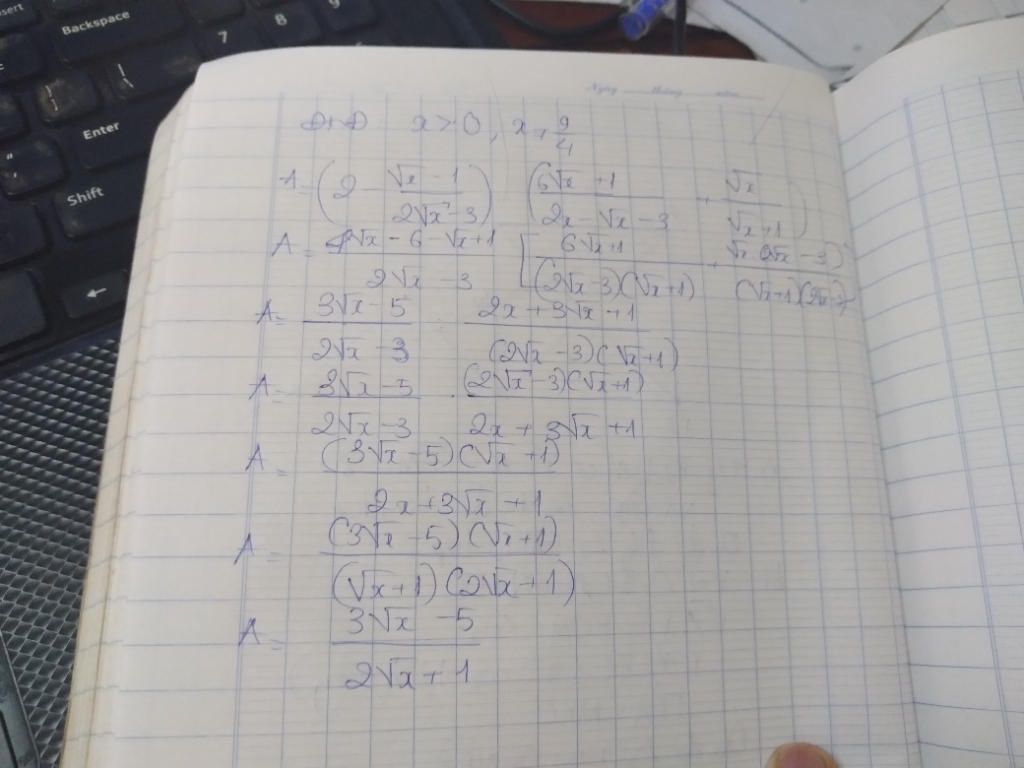 Backspace
7
8
9
Enter
Shift
Ngày tháng năm
x > 0, x ≠ 9/4
A = (2 - (√x - 1)/(2√x - 3)) ((6√x + 1)/(2x - √x - 3) + √x/(√x + 1))
A = (4√x - 6 - √x + 1)/(2√x - 3) [(6√x + 1)/((2√x - 3)(√x + 1)) + √x(2√x - 3)/((√x + 1)(2√x - 3))
A = (3√x - 5)/(2√x - 3) . (2x + 3√x + 1)/((2√x - 3)(√x + 1))
A = (3√x - 5)/(2√x - 3) . ((2√x - 3)(√x + 1))/(2x + 3√x + 1)
A = ((3√x - 5)(√x + 1))/(2x + 3√x + 1)
A = ((3√x - 5)(√x + 1))/((√x + 1)(2√x + 1))
A = (3√x - 5)/(2√x + 1)